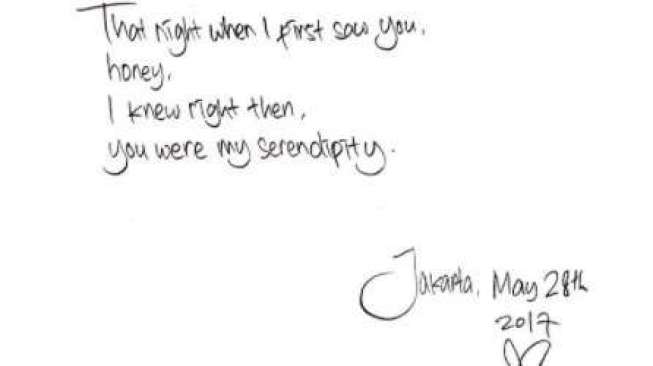 That night when I first saw you,
honey,
I knew right then,
you were my serendipity.
Jakarta, May 28th
2017